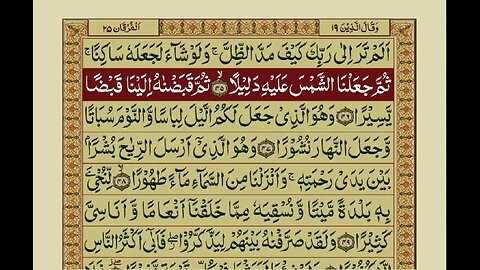 وَقَالَ الَّذِیْنَ ١٩
اَلْفُرْقَان ٢٥
اَلَمْ تَرَ اِلٰى رَبِّكَ كَیْفَ مَدَّ الظِّلَّ ۚ وَلَوْ شَآءَ لَجَعَلَهٗ سَاكِنًا ۚ
ثُمَّ جَعَلْنَا الشَّمْسَ عَلَیْهِ دَلِیْلًا ۙ ۴۵ ثُمَّ قَبَضْنٰهُ اِلَیْنَا قَبْضًا
یَّسِیْرًا ۴۶ وَهُوَ الَّذِیْ جَعَلَ لَكُمُ الَّیْلَ لِبَاسًا وَّالنَّوْمَ سُبَاتًا
وَّجَعَلَ النَّهَارَ نُشُوْرًا ۴۷ وَهُوَ الَّذِیْۤ اَرْسَلَ الرِّیٰحَ بُشْرًۢا
بَیْنَ یَدَیْ رَحْمَتِهٖ ۚ وَاَنْزَلْنَا مِنَ السَّمَآءِ مَآءً طَهُوْرًا ۙ ۴۸ لِّنُحْیِۦَ
بِهٖ بَلْدَةً مَّیْتًا وَّنُسْقِیَهٗ مِمَّا خَلَقْنَاۤ اَنْعَامًا وَّاَنَاسِیَّ
كَثِیْرًا ۴۹ وَلَقَدْ صَرَّفْنٰهُ بَیْنَهُمْ لِیَذَّكَّرُوْا ۖ فَاَبٰۤى اَكْثَرُ النَّاسِ